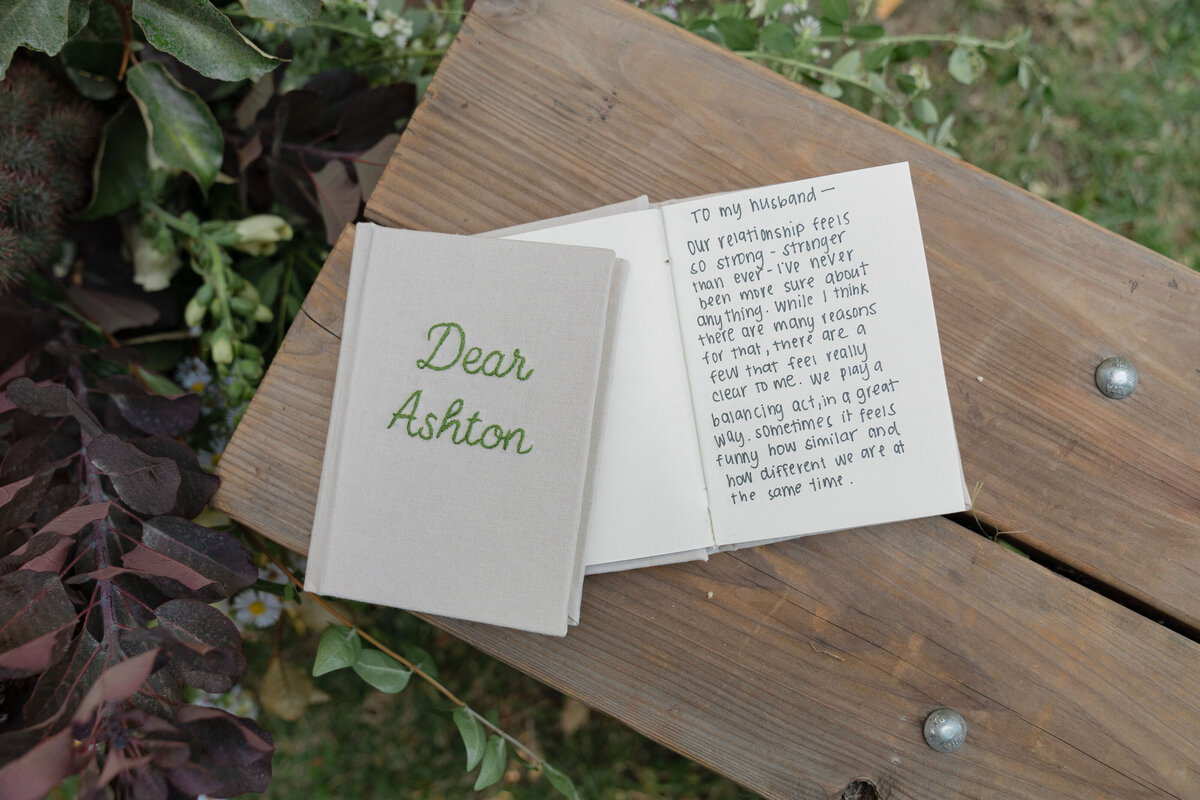 Dear
Ashton
TO my husband —
Our relationship feels
so strong - stronger
than ever - I've never
been more sure about
anything. While I think
there are many reasons
for that, there are a
few that feel really
clear to me. We play a
balancing act, in a great
way. Sometimes it feels
funny how similar and
how different we are at
the same time.